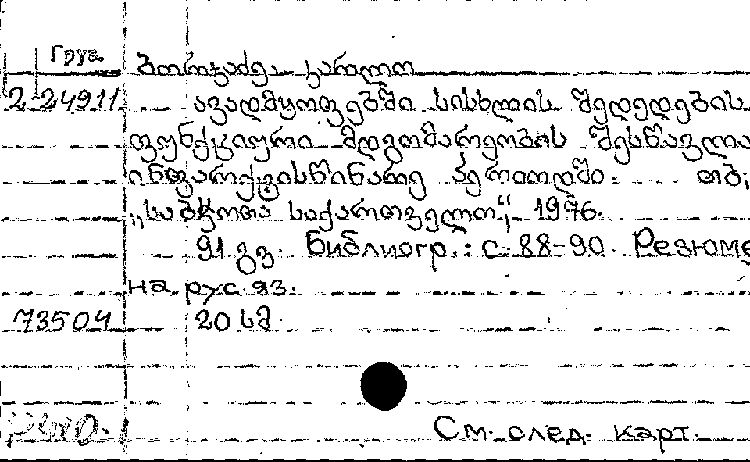 Груз.
ბორჯაძე კარლო
2 24911 ავადმყოფებში სისხლის შედედების
ფუნქციური მდგომარეობის შესწავლა
ინფარქტისწინარე პერიოდში. თბ.,
„საბჭოთა საქართველო“, 1976.
91 გვ. Библиогр.: с. 88-90. Резюме
на рус. яз.
73504 20 სმ.
См. след. карт.